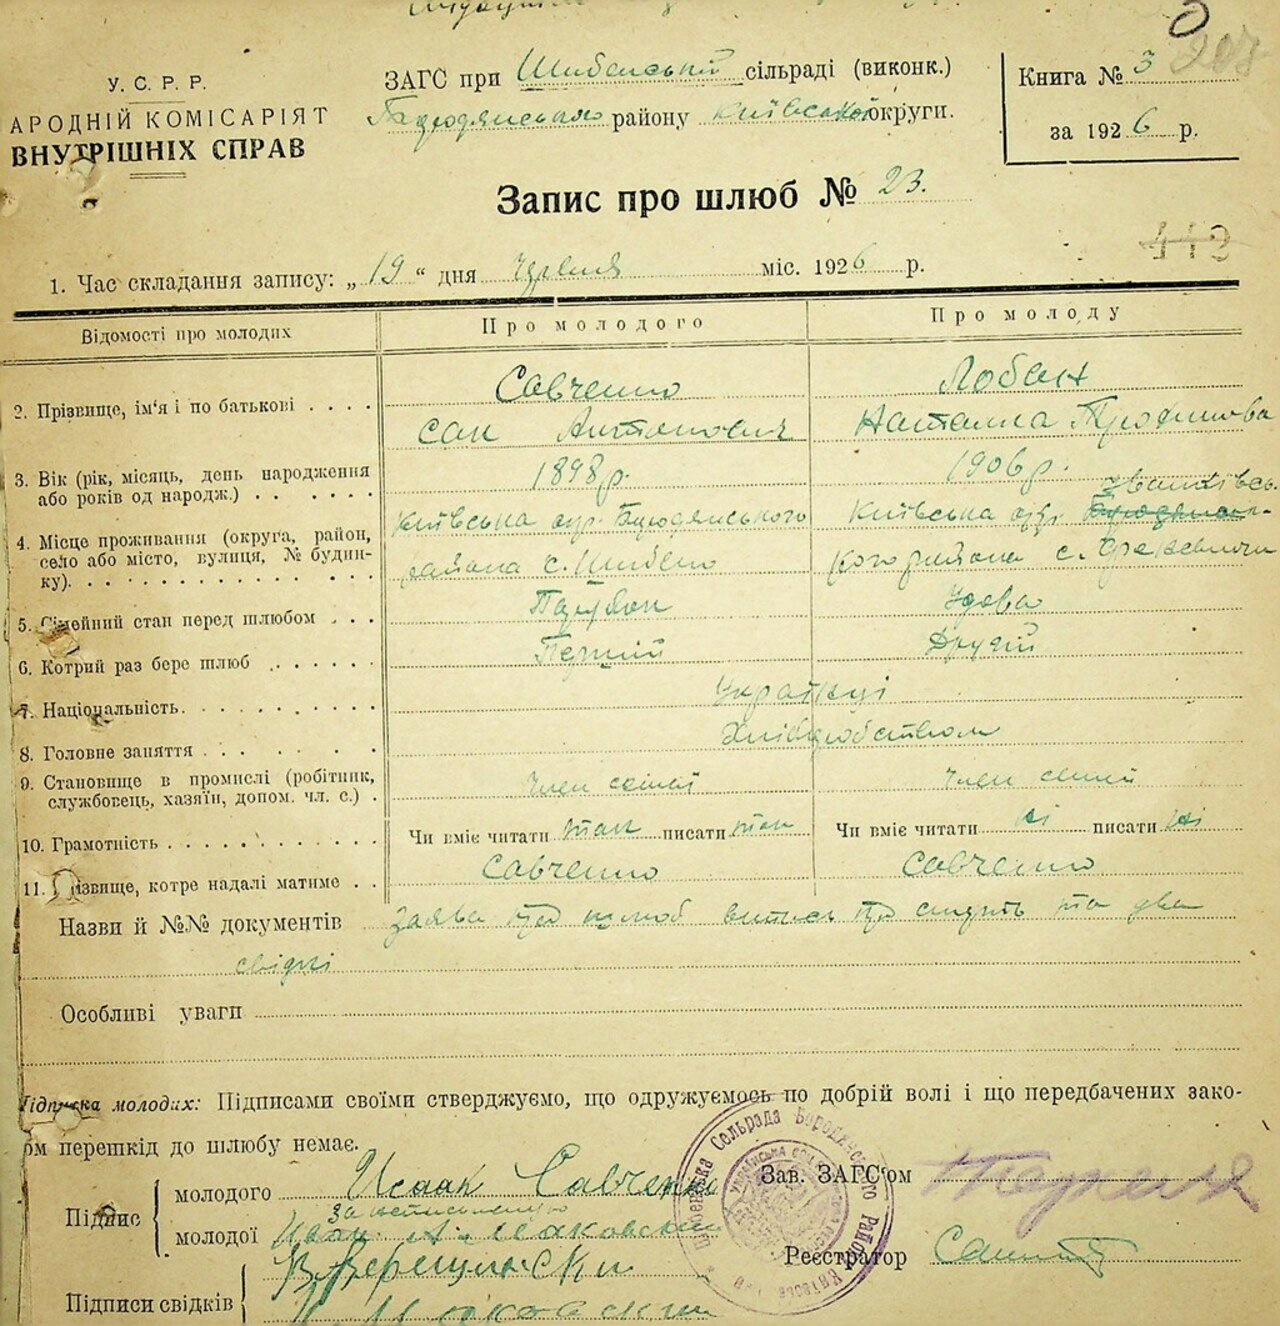 У. С. Р. Р.
АРОДНІЙ КОМІСАРІЯТ
ВНУТРІШНІХ СПРАВ
ЗАГС при Шибенській сільраді (виконк.)
району Київської округи.
Книга № 3
за 1926 р.
Запис про шлюб № 23.
1. Час складання запису: „19“ дня Червня міс. 1926 р.
Відомості про молодих
Про молодого
Про молоду
2. Прізвище, ім'я і по батькові
Савченко
Лобан
сак Антонович
Наталка Трофимова
3. Вік (рік, місяць, день народження
або років од народж.)
1898 р.
1906 р.
4. Місце проживання (округа, район,
село або місто, вулиця, № будин-
ку).
Київська окр.
района с. Шибено
Київська окр.
кого района с.
5. Сімейний стан перед шлюбом
Парубок
Удова
6. Котрий раз бере шлюб
Перший
Другий
7. Національність.
Українці
8. Головне заняття
Хліборобством
9. Становище в промислі (робітник,
службовець, хазяїн, допом. чл. с.)
Член сімї
Член семии
10. Грамотність
Чи вміє читати так писати так
Чи вміє читати ні писати ні
11. Прізвище, котре надалі матиме
Савченко
Савченко
Назви й №№ документів заява про шлюб випись про смерть та два
свідкі
Особливі уваги
Підписка молодих: Підписами своїми стверджуємо, що одружуємось по добрій волі і що передбачених зако-
ом перешкід до шлюбу немає.
Підпис
молодого Исаак Савченко
за неписьменную
молодої Іван
Зав. ЗАГС'ом
Реєстратор
Підписи свідків
Сельрада